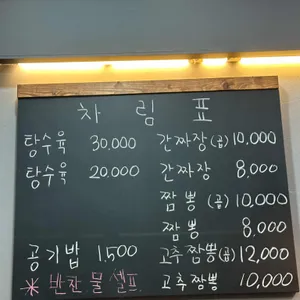 차림표
탕수육 30,000
탕수육 20,000
공기밥 1,500
* 반찬 물 셀프
간짜장(곱) 10,000
간짜장 8,000
짬뽕 (곱) 10,000
짬뽕 8,000
고추짬뽕(곱) 12,000
고추짬뽕 10,000